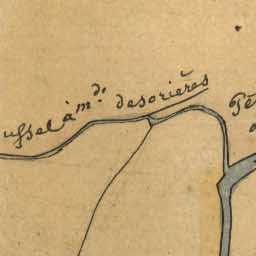 ussel à m.d. desorières
Pê